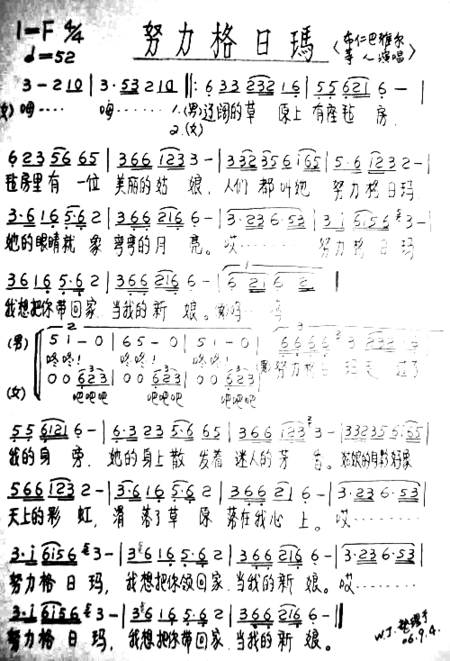 1=F 4/4
♩=52
努力格日瑪
(布仁巴雅尔等人演唱)
3 - 2 1 0 | 3 · 5 3 2 1 0 ‖: 6 3 3 2 3 2 1 6 | 5 5 5 6 2 1 6 - |
(女) 呣···· 嗨······ 1.(男)辽阔的草 原上 有座毡 房,
2.(女)
6 2 3 5 6 6 5 | 3 6 6 1 2 3 3 - | 3 3 2 3 5 6 i 6 5 | 5 · 6 1 2 3 2 - |
毡房里有 一位 美丽的姑 娘, 人们 都叫她 努力格日玛
3 · 6 1 6 5 · 6 2 | 3 6 6 2 1 6 6 - | 3 · 2 3 6 · 5 3 | 3 i 6 i 5 6 3 - |
她的眼睛就 象 弯弯的月 亮。哎········ 努力格 日 玛
3 6 1 6 5 · 6 2 | 3 6 6 2 1 6 6 - |
我想把你带回家 当我的 新 娘。
(男) 5 i - 0 | 6 5 - 0 | 5 i - 0 |
咚咚! 咚咚! 咚咚!
(女) 0 0 6 2 3 | 0 0 6 2 3 | 0 0 6 2 3
吧吧吧 吧吧吧 吧吧吧
努力格
5 5 6 1 2 1 6 - | 6 · 3 2 3 5 · 6 6 5 | 3 6 6 1 2 3 3 - | 3 3 2 3 5 6 i 6 5 |
我的身 旁, 她的身上散 发着 迷人的芳
5 6 6 1 2 3 2 - | 3 · 6 1 6 5 · 6 2 | 3 6 6 2 1 6 - | 3 · 2 3 6 · 5 3 |
天上的彩 虹, 滑 落了草 原 落在我心 上。 哎········
3 · i 6 i 5 6 3 - | 3 6 1 6 5 · 6 2 | 3 6 6 2 1 6 6 - | 3 · 2 3 6 · 5 3 |
努力格 日 玛, 我想把你领回家 当我的新 娘。哎········
3 · i 6 i 5 6 3 - | 3 6 1 6 5 · 6 2 | 3 6 6 2 1 6 6 - ‖
努力格 日 玛, 我想把你带回家 当我的新 娘。
W.J.
06.9.4.